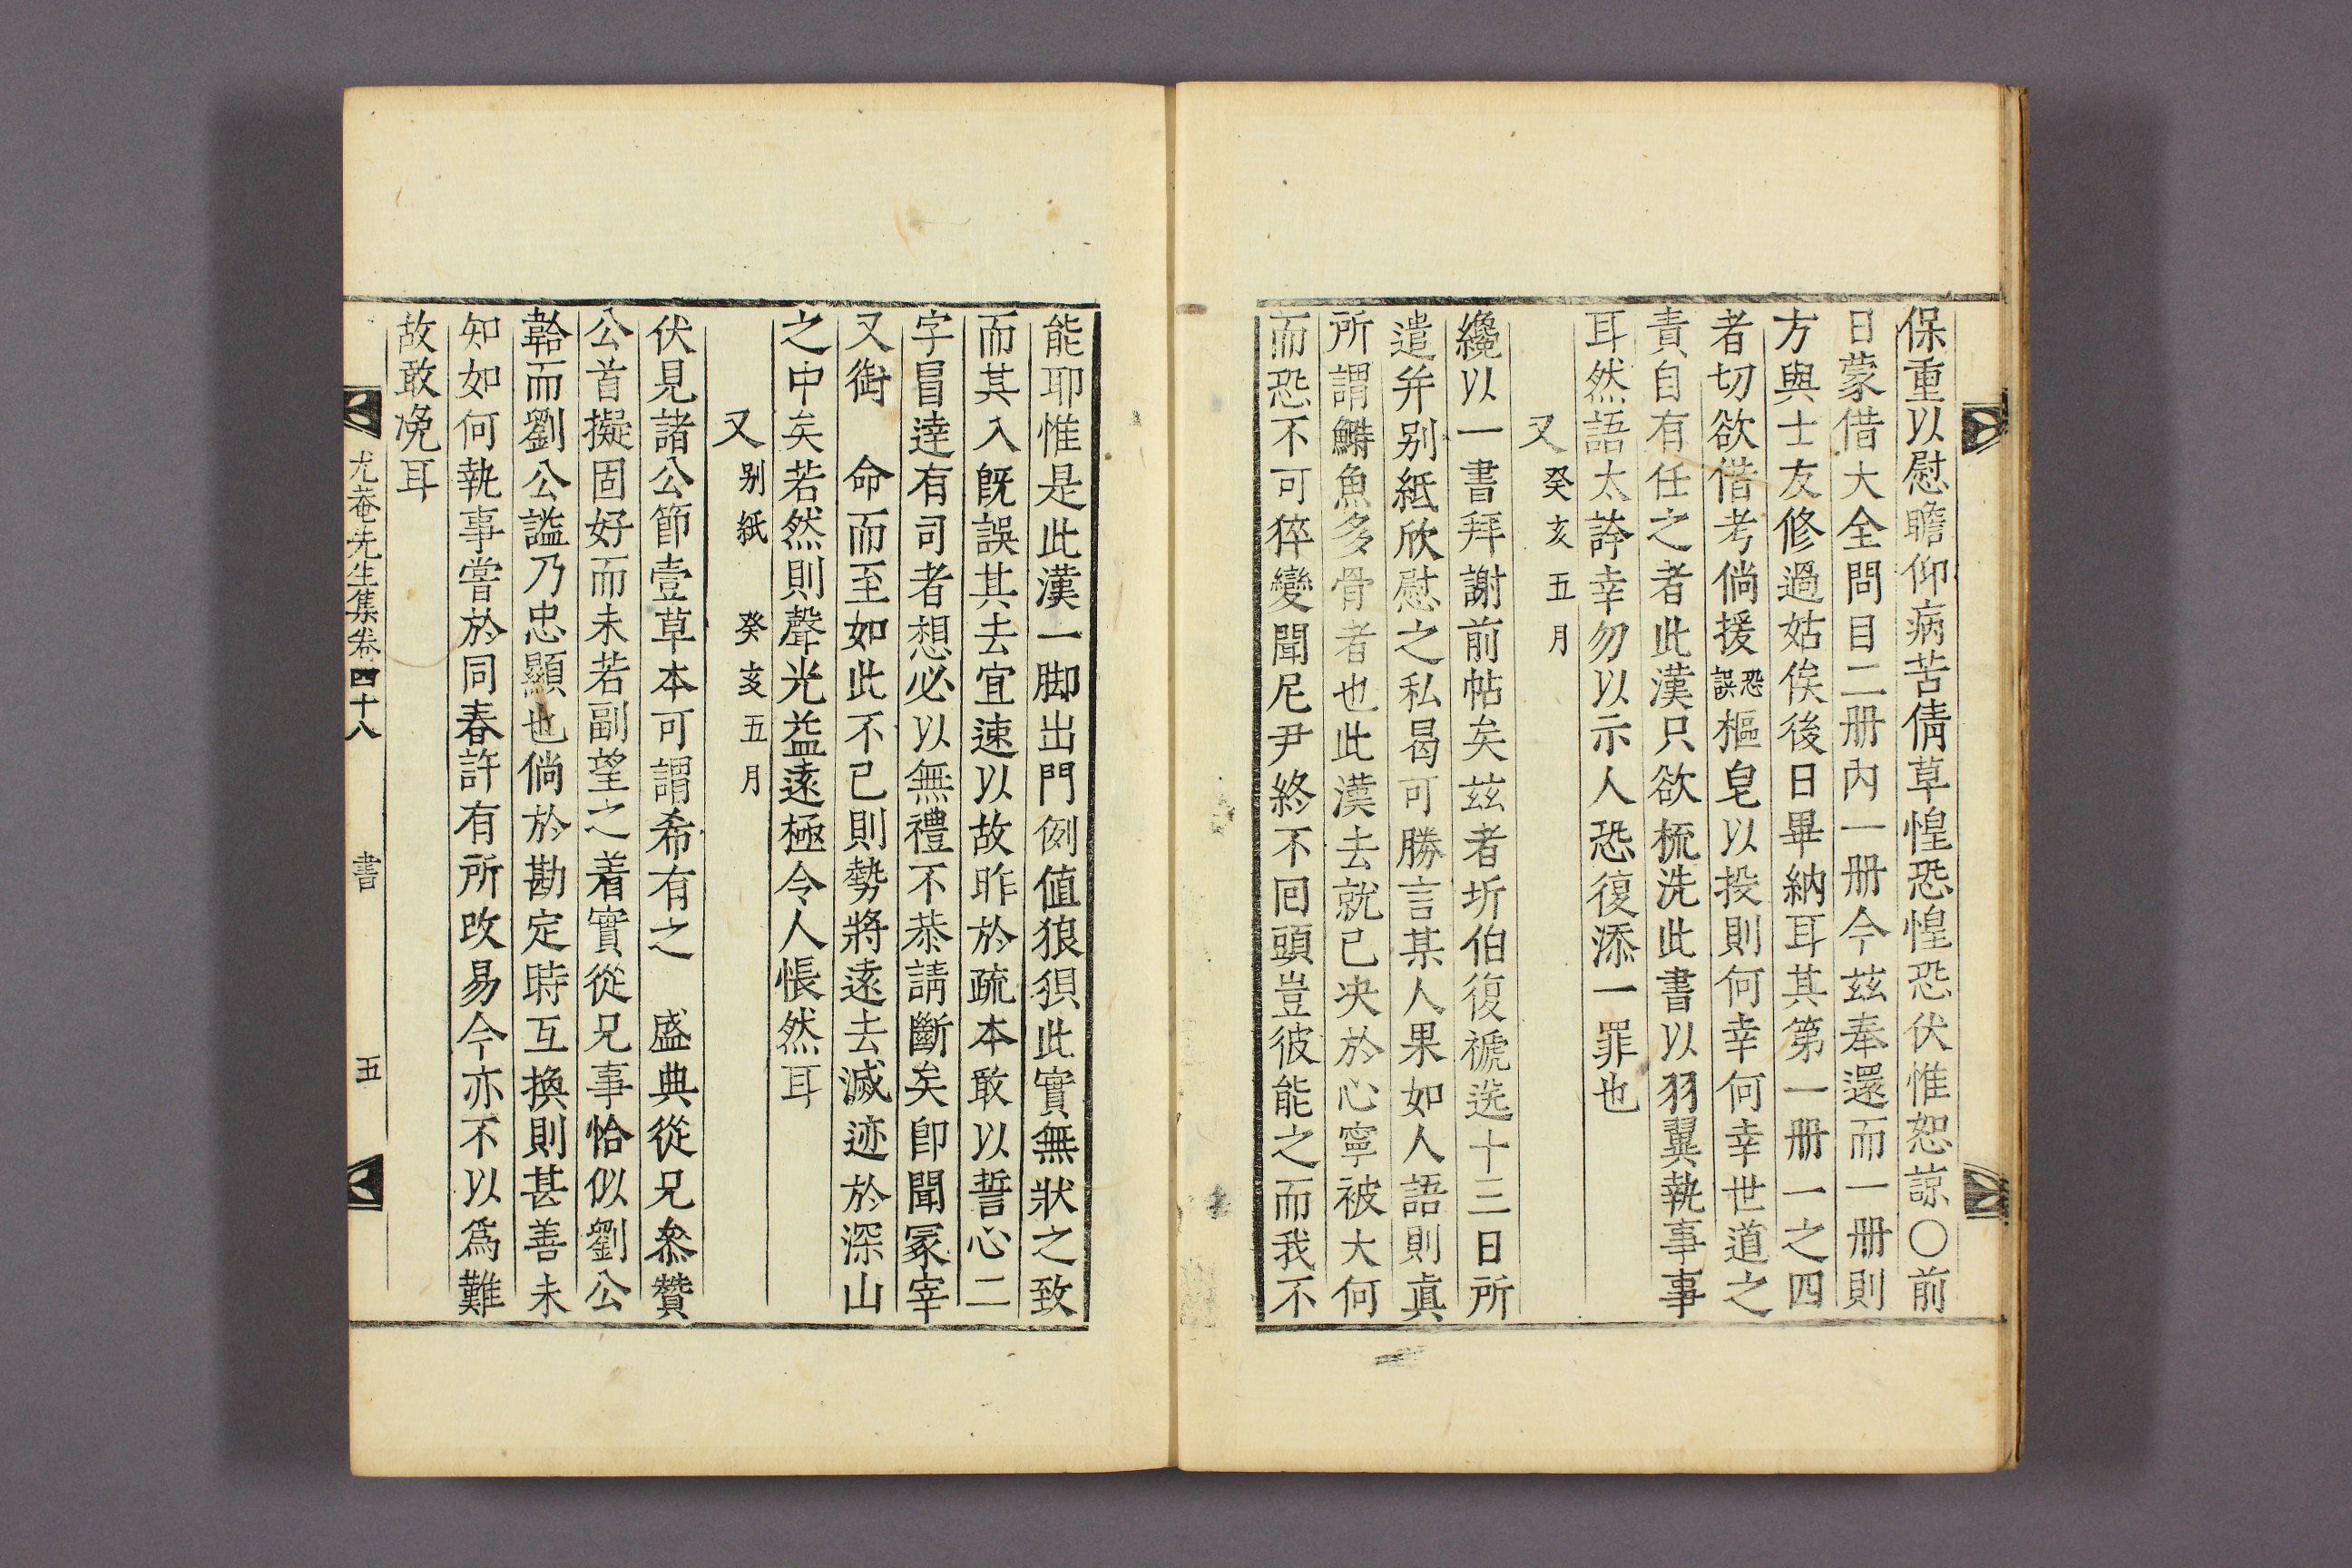 保重以慰瞻仰病苦倩草惶恐惶恐伏惟恕諒○前
日蒙借大全問目二册內一册今玆奉還而一册則
方與士友修過姑俟後日畢納耳其第一册一之四
者切欲借考倘援恐誤樞皂以投則何幸何幸世道之
責自有任之者此漢只欲梳洗此書以羽翼執事事
耳然語太誇幸勿以示人恐復添一罪也
又癸亥五月
纔以一書拜謝前帖矣玆者圻伯復褫送十三日所
遣幷別紙欣慰之私曷可勝言某人果如人語則眞
所謂鰣魚多骨者也此漢去就已决於心寧被大何
而恐不可猝變聞尼尹終不回頭豈彼能之而我不
能耶惟是此漢一脚出門例値狼狽此實無狀之致
而其入旣誤其去宜速以故昨於疏本敢以誓心二
字冒達有司者想必以無禮不恭請斷矣卽聞冢宰
又銜　命而至如此不已則勢將遠去滅迹於深山
之中矣若然則聲光益遠極令人悵然耳
又別紙　癸亥五月
伏見諸公節壹草本可謂希有之　盛典從兄叅贊
公首擬固好而未若副望之着實從兄事恰似劉公
韐而劉公謚乃忠顯也倘於勘定時互換則甚善未
知如何執事嘗於同春許有所改易今亦不以爲難
故敢浼耳
尤菴先生集卷四十八　書　五